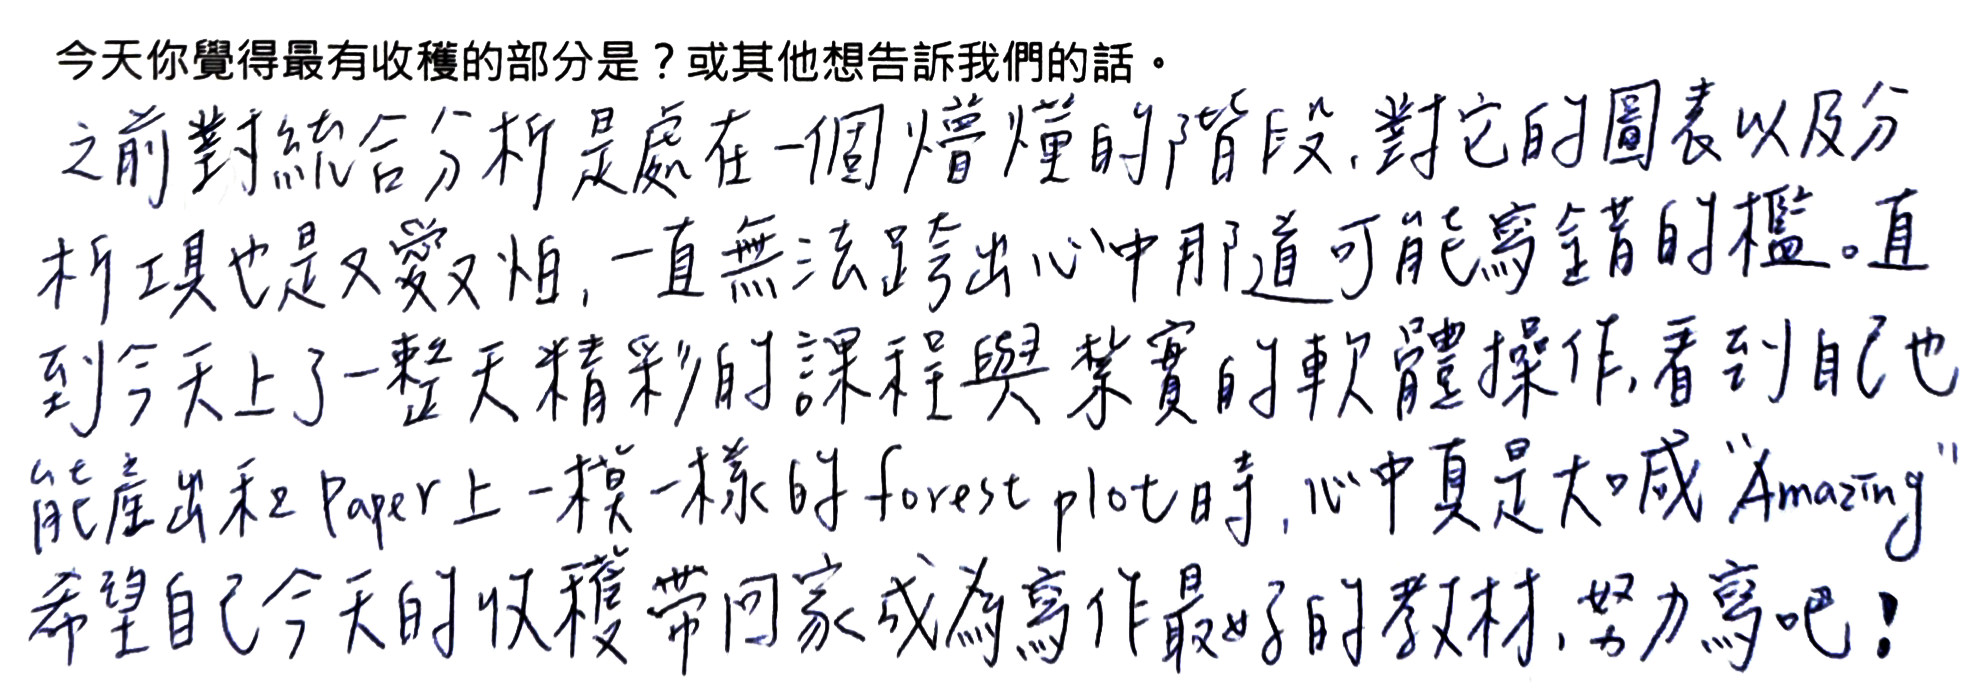 今天你覺得最有收穫的部分是？或其他想告訴我們的話。
之前對統合分析是處在一個懵懂的階段,對它的圖表以及分
析工具也是又愛又怕,一直無法跨出心中那道可能寫錯的檻。直
到今天上了一整天精彩的課程與紮實的軟體操作,看到自己也
能產出和Paper上一模一樣的forest plot時,心中真是大喊"Amazing"
希望自己今天的收穫帶回家成為寫作最好的教材,努力寫吧!